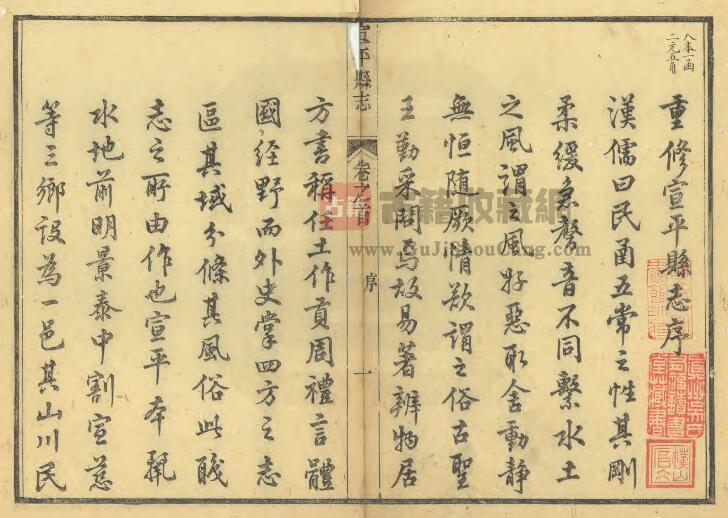 八本一函
二元五角
重修宣平縣志序
漢儒曰民函五常之性其剛
柔緩急聲音不同繫水土
之風謂之風好惡取舍動靜
無恒隨厥情欲謂之俗古聖
王勤采問焉故易著辨物居
宣平縣志
卷之首
序
一
方書稱任土作貢周禮言體
國經野而外史掌四方之志
區其域分條其風俗此職
志之所由作也宣平本麗
水地前明景泰中割宣慈
等三鄉設為一邑其山川民
古籍 古籍收藏網
www.GuJiShouCang.com